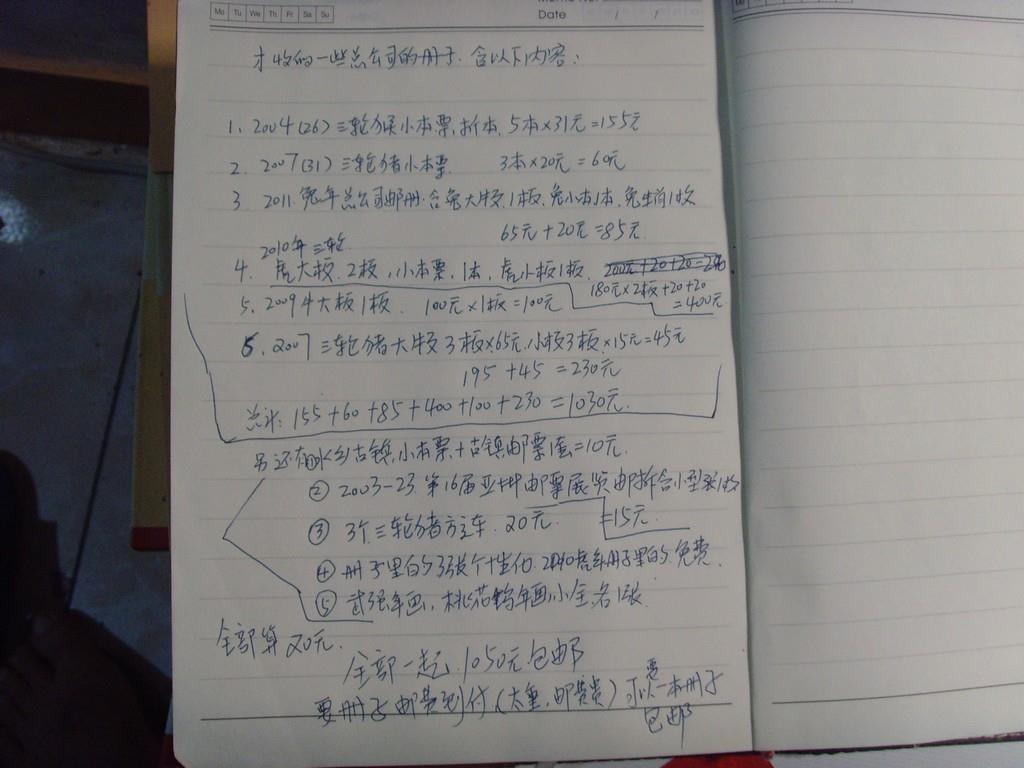 Mo Tu We Th Fr Sa Su
Memo No.
Date / /
才收的一些总公司的册子. 含以下内容:
1. 2004(26)三轮猴小本票.折本. 5本×31元=155元
2. 2007(31)三轮猪小本票 3本×20元=60元
3. 2011. 兔年总公司邮册.含兔大版1板、兔小本1本、兔生肖1枚
65元+20元=85元
2010年三轮
4. 虎大板.2板,小本票,1本,虎小板1板. 200元+20+20=240
180元×2板+20+20
=400元
5. 2009牛大板1板. 100元×1板=100元
6. 2007三轮猪大版3板×65元.小板3板×15元=45元
195+45=230元
总计: 155+60+85+400+100+230=1030元.
另还有①水乡古镇.小本票+古镇邮票1套=10元.
② 2003-23.第16届亚洲邮票展览邮折含小型张1枚
=15元
③ 3个三轮猪方连. 20元.
④ 册子里的3张个性化. 2010虎年册子里的.免费.
⑤ 武强年画,桃花坞年画小全各1张
全部算20元.
全部一起.1050元包邮
要册子邮费到付(太重,邮费贵)可以要一本册子
包邮